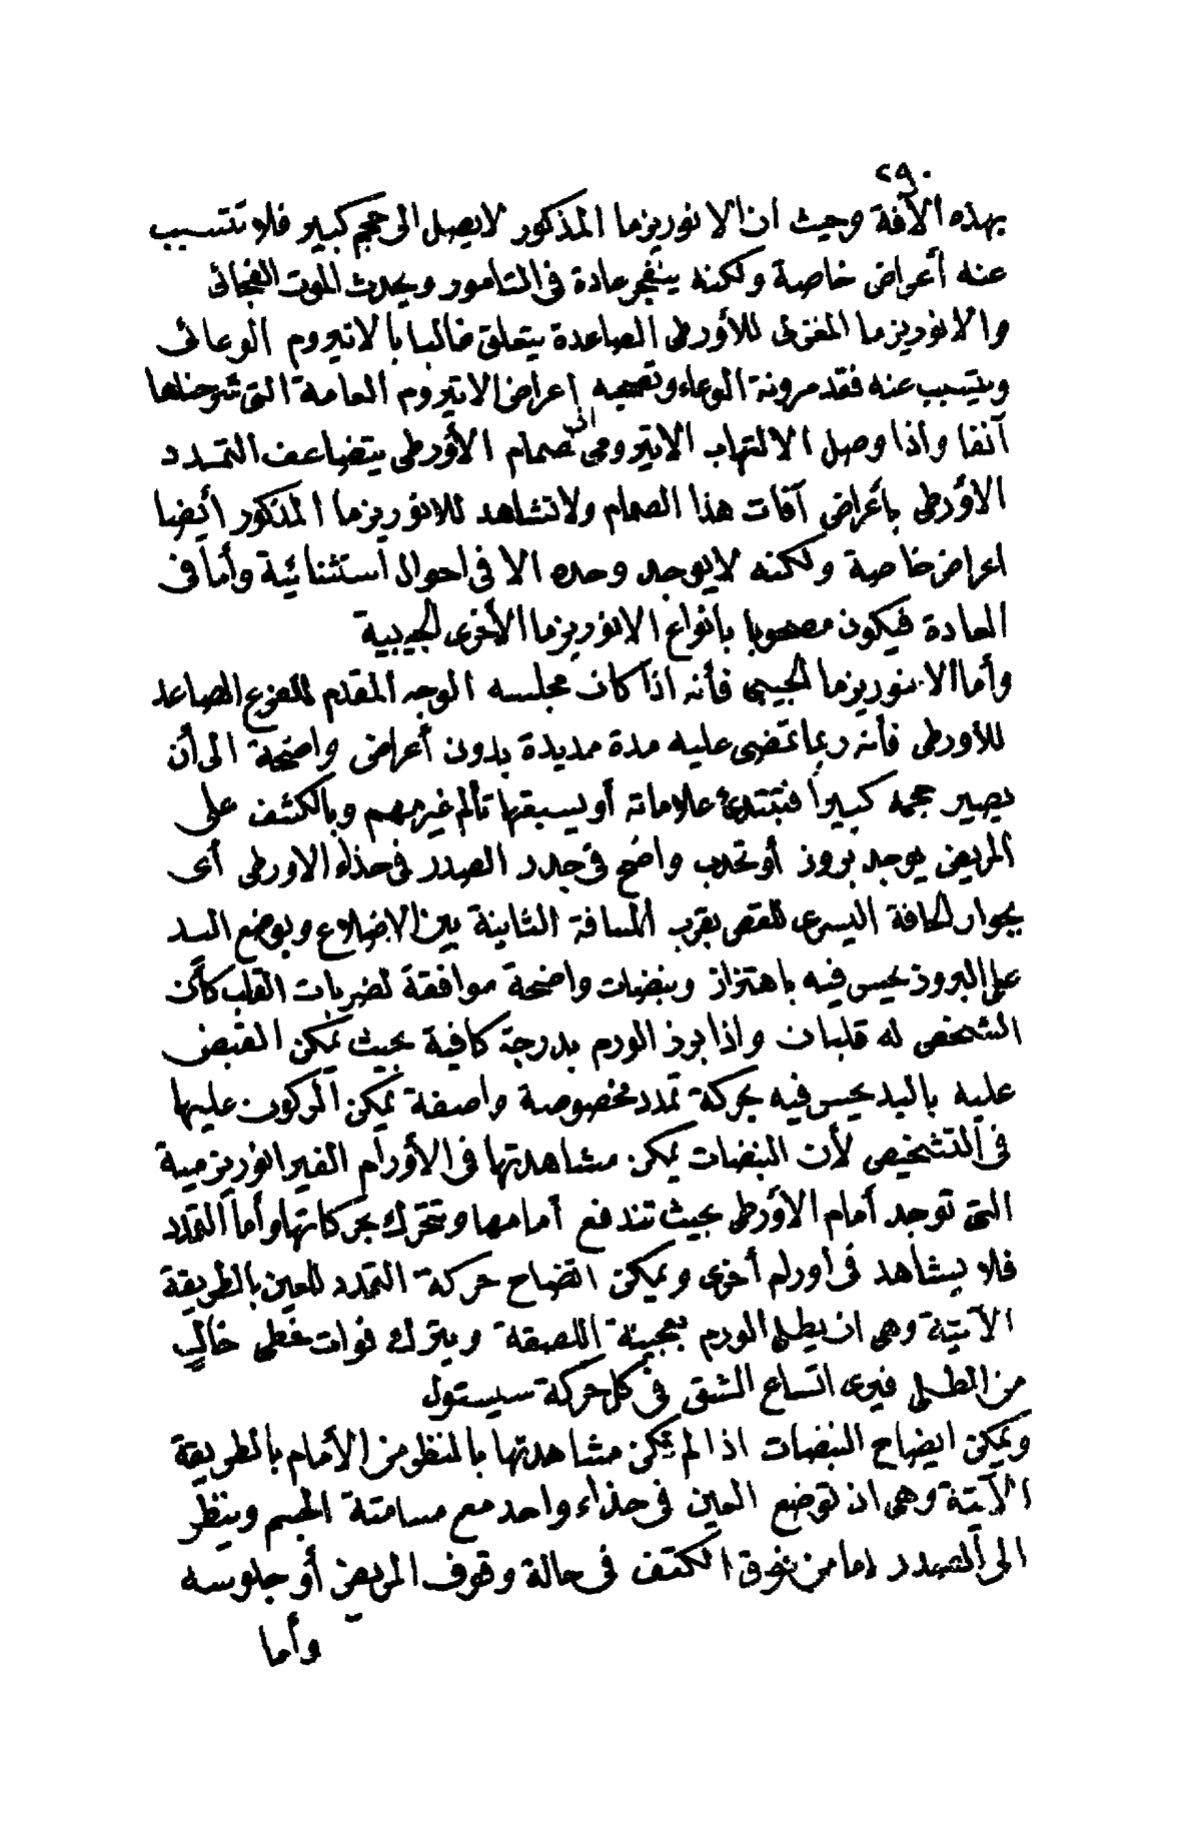 ٢٩٠
بهذه الآفة وحيث ان الانوريزما المذكور لا يصل الى حجم كبير فلا تتسبب
عنه أعراض خاصة ولكنه ينفجر عادة فى التامور ويحدث الموت الفجائى
والانوريزما المغزلى للأورطى الصاعدة يتعلق غالبا بالاتيروم الوعائى
ويتسبب عنه فقد مرونة الوعاء وتصحبه اعراض الاتيروم العامة التى شرحناها
آنفا واذا وصل الالتهاب الاتيرومى الى صمام الأورطى يتضاعف التمدد
الأورطى بأعراض آفات هذا الصمام ولا تشاهد للانوريزما المذكور أيضا
اعراض خاصة ولكنه لا يوجد وحده الا فى احوال استثنائية وأما فى
العادة فيكون مصحوبا بأنواع الانوريزما الأخرى الجيبية
وأما الانوريزما الجيبى فأنه اذا كان مجلسه الوجه المقدم للفرع الصاعد
للأورطى فأنه ربما تمضى عليه مدة مديدة بدون أعراض واضحة الى أن
يصير حجمه كبيرا فتبتدئ علاماته أو يسبقها تألم غير مهم وبالكشف على
المريض يوجد بروز أو تحدب واضح فى جدر الصدر فى حذاء الاورطى أى
بجوار الحافة اليسرى للقص بقرب المسافة الثانية بين الاضلاع وبوضع اليد
على البروز يحس فيه باهتزاز وبنضبات واضحة موافقة لضربات القلب كأن
الشخص له قلبان واذا برز الورم بدرجة كافية بحيث يمكن القبض
عليه باليد يحس فيه بحركة تمدد مخصوصة واصفة يمكن الركون عليها
فى التشخيص لأن النبضات يمكن مشاهدتها فى الأورام الغير انوريزمية
التى توجد أمام الأورطى بحيث تندفع أمامها وتتحرك بحركاتها وأما التمدد
فلا يشاهد فى أورام أخرى ويمكن اتضاح حركة التمدد للعين بالطريقة
الآتية وهى ان يطلى الورم بعجينة اللصقة ويترك فوات خطى خالي
من الطلى فيرى اتساع الشق فى كل حركة سيستول
ويمكن ايضاح النبضات اذا لم يمكن مشاهدتها بالنظر من الأمام بالطريقة
الآتية وهى ان توضع العين فى حذاء واحد مع مسامتة الجسم وينظر
الى الصدر اما من فوق الكتف فى حالة وقوف المريض أو جلوسه
وأما